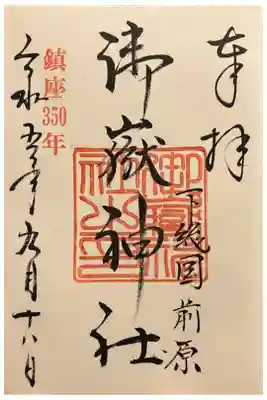 奉拝
下総国前原
御嶽神社
御嶽神社之印
鎮座350年
令和五年九月十八日